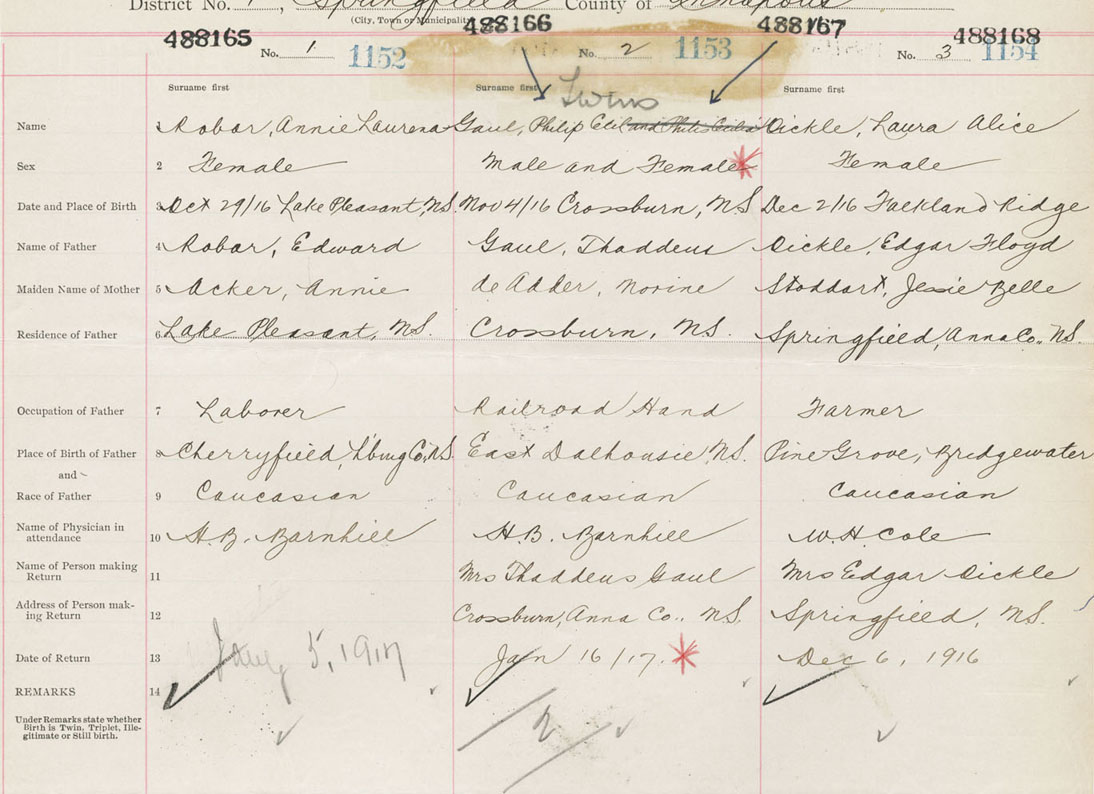 District No. 1, Springfield County of Annapolis
(City, Town or Municipality)
488165 488166 488167 488168
No. 1 1152 No. 2 1153 No. 3 1154
Surname first Surname first Surname first
Twins
Name 1 Robar, Annie Laurena Gaul, Philip Cecil and Philis Cecilia Dickle, Laura Alice
Sex 2 Female Male and Female Female
Date and Place of Birth 3 Oct 29/16 Lake Pleasant, N.S. Nov 4/16 Crossburn, NS Dec 2/16 Falkland Ridge
Name of Father 4 Robar, Edward Gaul, Thaddeus Dickle, Edgar Floyd
Maiden Name of Mother 5 Acker, Annie de Adder, Norine Stoddart, Jessie Belle
Residence of Father 6 Lake Pleasant, NS. Crossburn, NS. Springfield, Anna Co., NS.
Occupation of Father 7 Laborer Railroad Hand Farmer
Place of Birth of Father 8 Cherryfield, L'burg Co, N.S. East Dalhousie, NS. Pine Grove, Bridgewater
and
Race of Father 9 Caucasian Caucasian Caucasian
Name of Physician in
attendance 10 H.B. Barnhill H.B. Barnhill W.H Cole
Name of Person making
Return 11 Mrs Thaddeus Gaul Mrs Edgar Dickle
Address of Person mak-
ing Return 12 Crossburn, Anna Co., NS. Springfield, NS.
Date of Return 13 Jany 5, 1917 Jan 16/17. Dec 6, 1916
REMARKS 14
Under Remarks state whether
Birth is Twin, Triplet, Ille-
gitimate or Still birth.
2